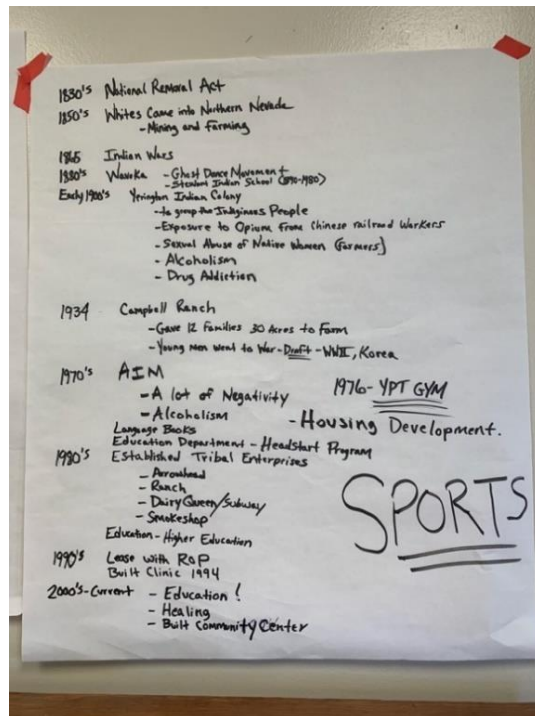 1830's National Removal Act
1850's Whites Came into Northern Nevada
- Mining and Farming
1865 Indian Wars
1880's Wavoka - Ghost Dance Movement
- Stewart Indian School (1890-1980)
Early 1900's Yerington Indian Colony
- to group the Indiginous People
- Exposure to Opium From Chinese railroad Workers
- Sexual Abuse of Native Women (Farmers)
- Alcoholism
- Drug Addiction
1934 Campbell Ranch
- Gave 12 families 30 Acres to Farm
- Young men went to War - Draft - WWII, Korea
1970's AIM
- A lot of Negativity
- Alcoholism
Language Books
Education Department - Headstart Program
1976 - YPT GYM
- Housing Development.
1980's Established Tribal Enterprises
- Arrowhead
- Ranch
- Dairy Queen/Subway
- Smokeshop
Education - Higher Education
SPORTS
1990's Lease with RoP
Built Clinic 1994
2000's - Current - Education!
- Healing
- Built Community Center